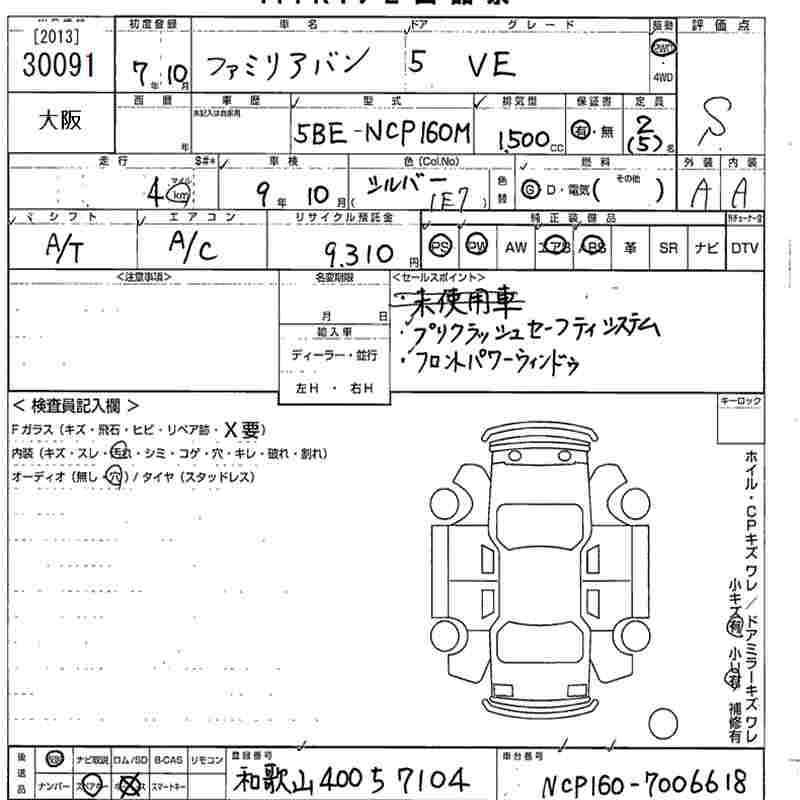 [2013]
30091
大阪
初度登録
7年 10月
車名
ファミリアバン
ドア
5
グレード
VE
駆動
2WD
4WD
評価点
S
西暦
年
車歴
未記入は自家用
型式
5BE-NCP160M
排気型
1,500 CC
保証書
有・無
定員
2
(5)名
走行
4 マイル km
S#*
車検
9年 10月
色(Col,No)
シルバー
(1E7)
色替
燃料
G D・電気( その他 )
外装
A
内装
A
シフト
A/T
エアコン
A/C
リサイクル預託金
9,310 円
純正装備品
PS PW AW エアB ABS 革 SR ナビ DTV
<注意事項>
名変期限
月 日
輸入車
ディーラー・並行
左H ・ 右H
<セールスポイント>
・未使用車
・プリクラッシュセーフティシステム
・フロントパワーウィンドゥ
< 検査員記入欄 >
Fガラス(キズ・飛石・ヒビ・リペア跡・X要)
内装(キズ・スレ・汚れ・シミ・コゲ・穴・キレ・破れ・割れ)
オーディオ(無し・穴)/タイヤ(スタッドレス)
キーロック
ホイル・CPキズ ワレ / ドアミラーキズ ワレ
小キズ有 小U有 補修有
後送品
ナビ取説 ロム/SD B-CAS リモコン
ナンバー スペアキー スマートキー
登録番号
和歌山 400 ち 7104
車台番号
NCP160-7006618